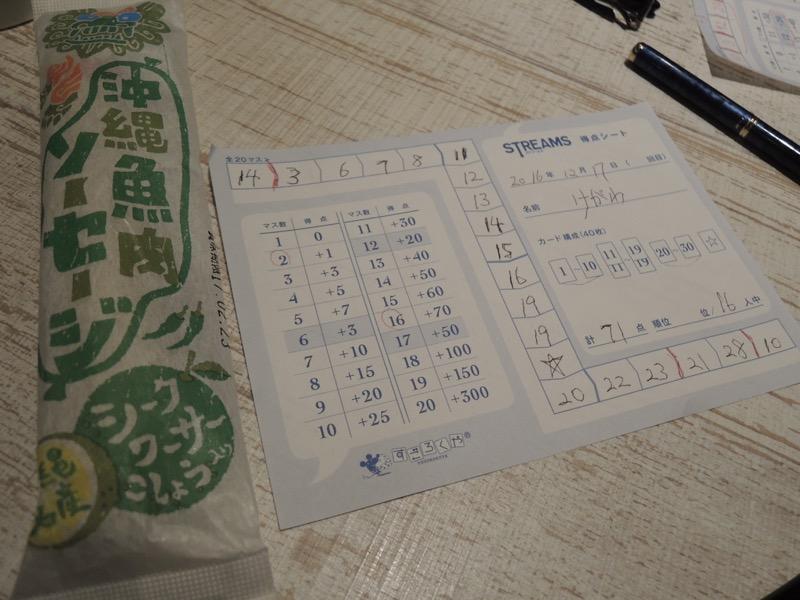 沖縄魚肉
ソーセージ
シーク
ワーサー
こしょう入り
全20マス
14 3 6 7 8 11
12
13
14
15
16
19
19
☆
20 22 23 21 28 10
マス数 得点 マス数 得点
1 0 11 +30
2 +1 12 +20
3 +3 13 +40
4 +5 14 +50
5 +7 15 +60
6 +3 16 +70
7 +10 17 +50
8 +15 18 +100
9 +20 19 +150
10 +25 20 +300
すごろくや®
STREAMS 得点シート
2016年 12月 17日 ( 回目)
名前 けがわ
カード構成(40枚)
1~10 11~19 11~19 20~30 ☆
計 71 点 順位 位/16人中